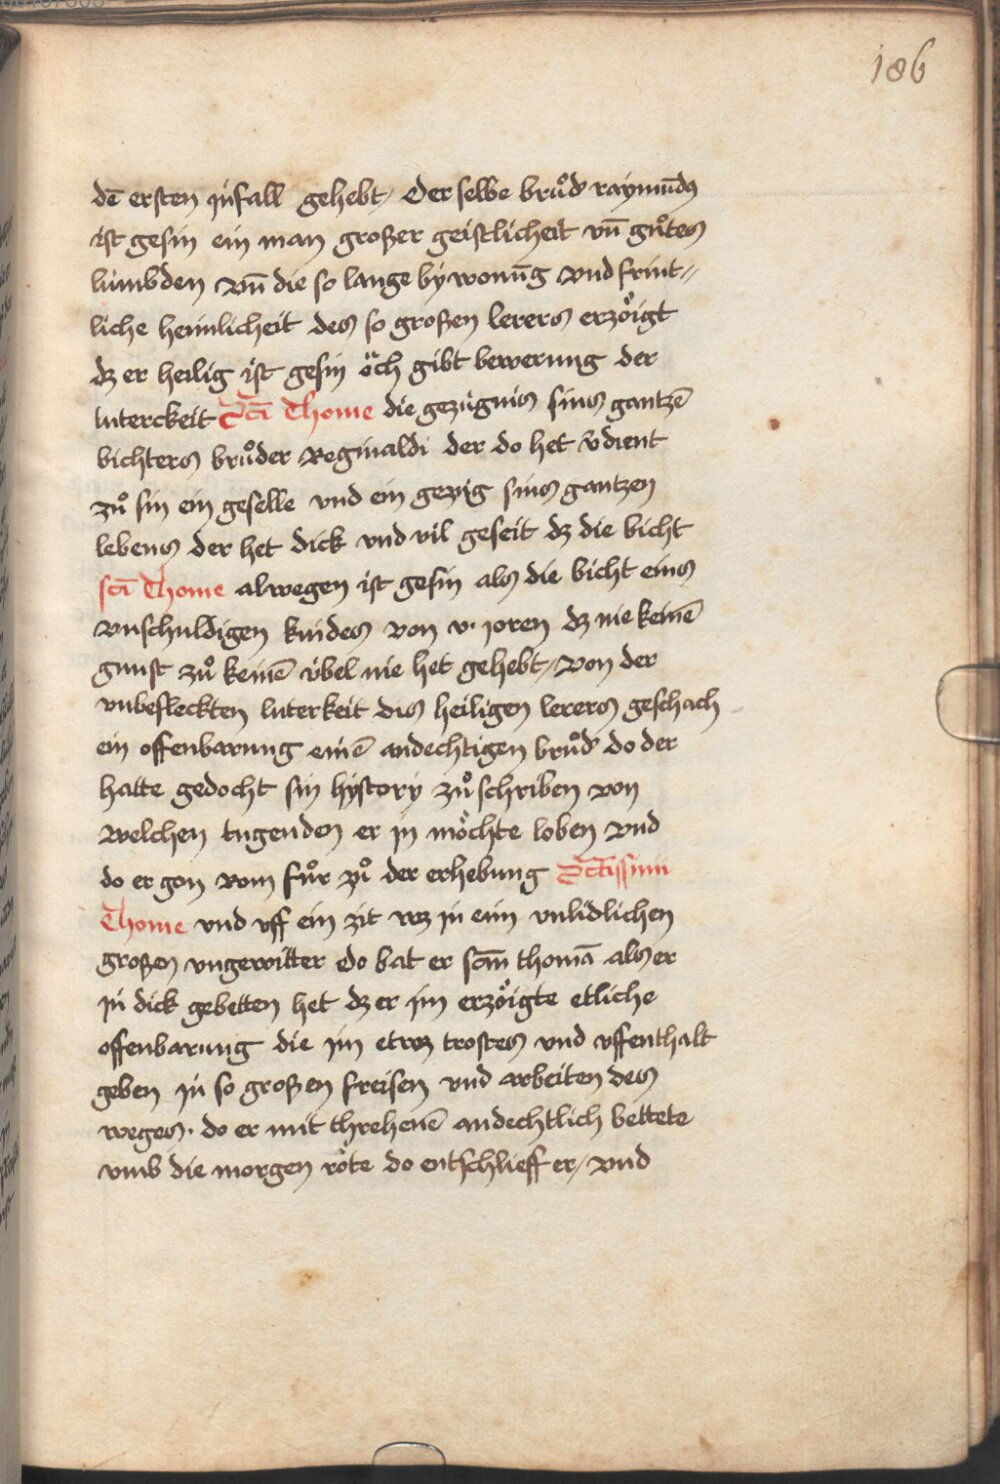 186
dē ersten jnfall gehebt / Der selbe brůd' raymūdꝯ
ist gesin ein man großer geistlicheit vn̄ gůtes
lümbden vn̄ die so lange bÿwonūg vnd frünt⸗
liche heimlicheit des so großen lerers erzöigt
dz er heilig ist gesin öch gibt bewerung der
luterckeit Scī Thome die gezügnis sins gantzē
bichters brůder Reginaldi der do het v̄dient
zů sin ein geselle vnd ein gezüg sins gantzen
lebens der het dick vnd vil geseit dz die bicht
scī Thome alwegen ist gesin als die bicht eins
vnschuldigen kindes von v. joren dz nie keinē
gunst zů keinē v̈bel nie het gehebt / von der
vnbefleckten luterkeit dis heiligen lerers geschach
ein offenbarung einē andechtigen brůd' do der
hatte gedocht sin hÿstory zů schriben von
welchen tugenden er jn möchte loben vnd
do er gon vom fůr zů der erhebung Sctissimi
Thome vnd vff ein zit wz jn eim vnlidlichen
großen vngewitter do bat er scm̄ thomā als er
jn dick gebetten het dz er jm erzöigte etliche
offenbarung die jm etwz trostes vnd vffenthalt
geben jn so großen freisen vnd arbeiten des
weges. do er mit threhenē andechtlich bettete
vmb die morgen röte do entschlieff er / vnd